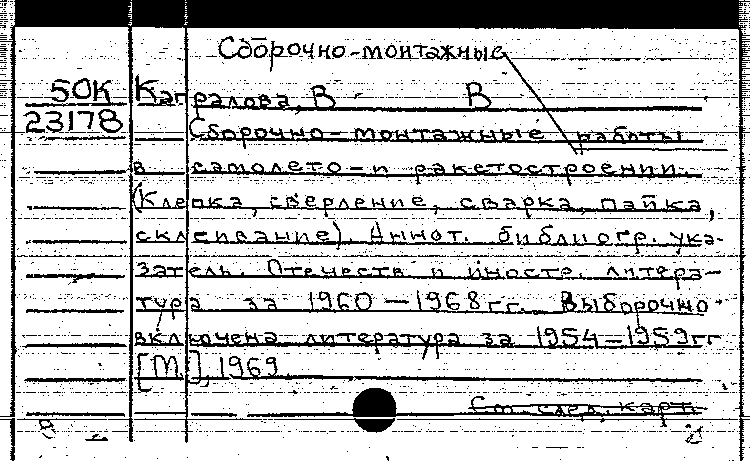 Сборочно-монтажные
50К Каралова, В В
23178 Сборочно-монтажные работы
в самолето- и ракетостроении.
(Клепка, сверление, сварка, пайка,
склеивание). Аннот. библиогр. ука-
затель. Отечеств и иностр. литера-
тура за 1960-1968 гг. Выборочно
включена литература за 1954-1959 гг
[М.], 1969.
См. след. карт.